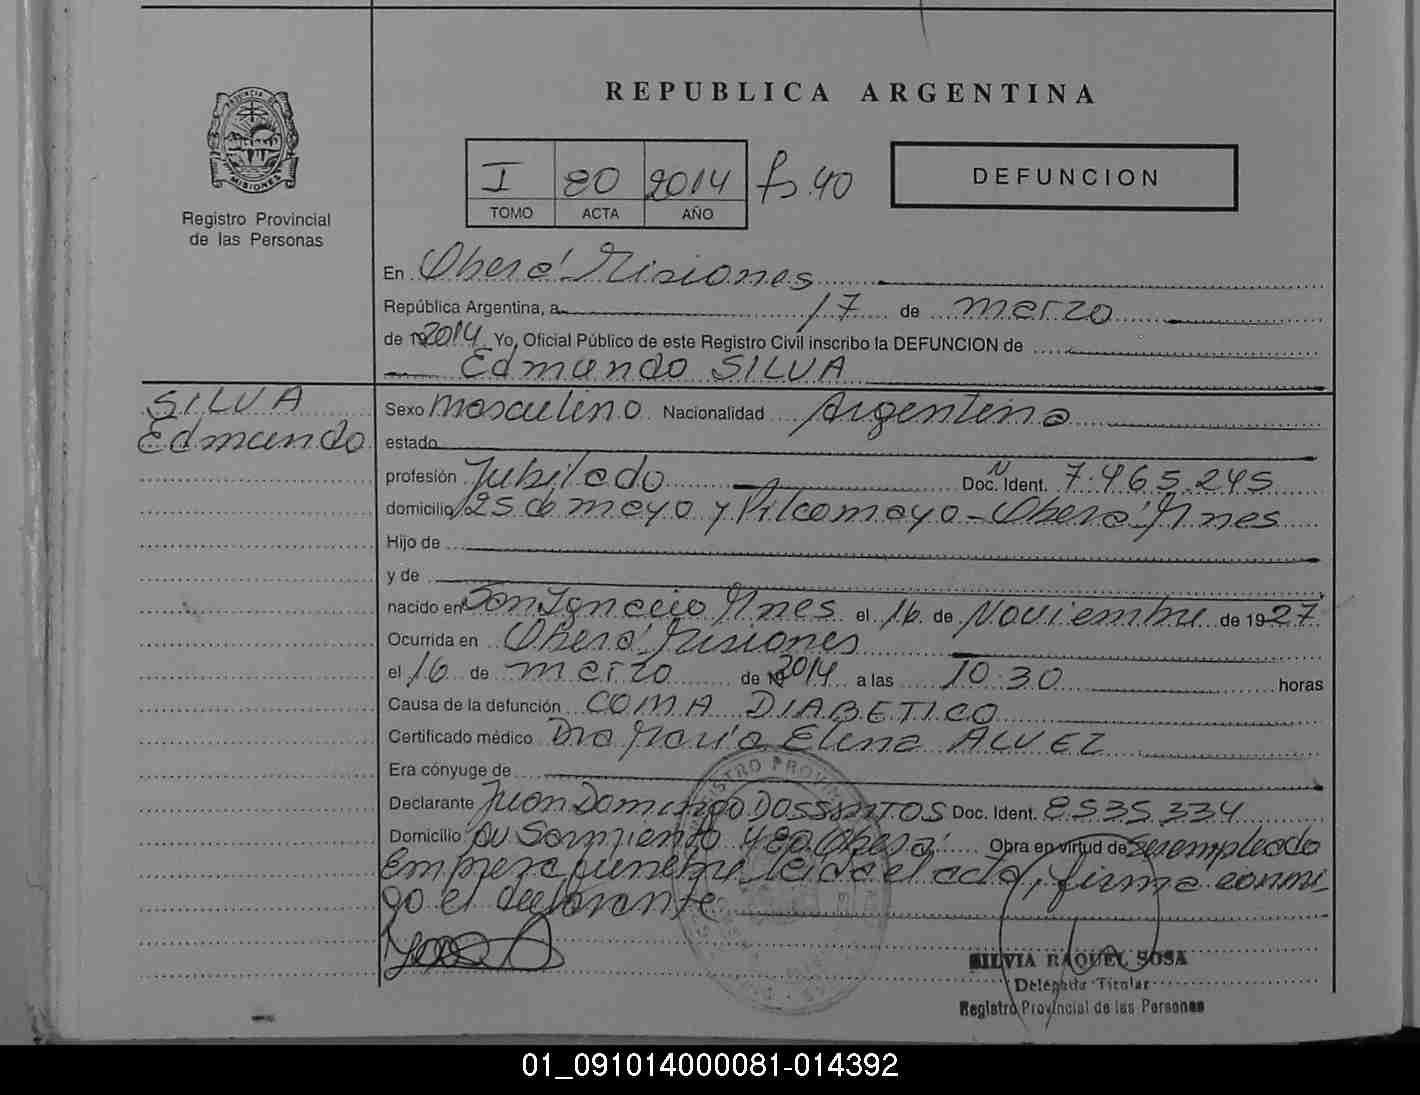 REPUBLICA ARGENTINA
PROVINCIA DE
MISIONES
Registro Provincial
de las Personas
I 80 2014 fs. 40
TOMO ACTA AÑO
DEFUNCION
En Oberá Misiones
República Argentina, a 17 de marzo
de 2014 Yo, Oficial Público de este Registro Civil inscribo la DEFUNCION de
Edmundo SILVA
SILVA
Edmundo
Sexo masculino Nacionalidad Argentina
estado
profesión Jubilado Doc. Ident. 7.465.245
domicilio 25 de mayo y Pilcomayo - Oberá Mnes
Hijo de
y de
nacido en San Ignacio Mnes el 16 de Noviembre de 1927
Ocurrida en Oberá Misiones
el 16 de marzo de 2014 a las 10.30 horas
Causa de la defunción COMA DIABETICO
Certificado médico Dra María Elena ALVEZ
Era cónyuge de
Declarante Juan Domingo DOSSANTOS Doc. Ident. 8.535.334
Domicilio Av Sarmiento 480 Oberá Obra en virtud de ser empleado
empresa funebre leida el acta, firma conmi_
go el declarante
REGISTRO PROVINCIAL
SILVIA RAQUEL SOSA
Delegada Titular
Registro Provincial de las Personas
01_091014000081-014392